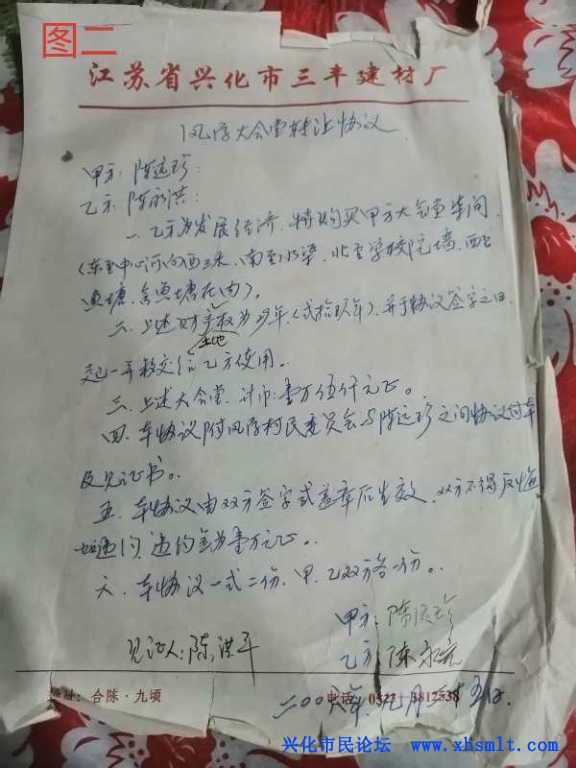 图二
江苏省兴化市三丰建材厂
大会堂转让协议
甲方：陈远珍：
乙方：陈永洪：
一、乙方为发展经济，特购买甲方大会堂车间
（东至中心河向西三米，南至 北至学校院墙，西至
鱼塘，含鱼塘在内）。
二、上述财产权为 年（贰拾玖年），并于协议签字之日
土地
起一并移交给乙方使用。
三、上述大会堂，计币：壹万伍仟元正。
四、本协议附 村民委员会与陈远珍之间协议
及见证书。
五、本协议由双方签字或盖章后生效，双方不得反悔
如违约，违约金为壹万元正。
六、本协议一式二份，甲、乙双方各一份。
甲方：陈远珍
见证人：陈洪平
乙方：陈永
：合陈·九顷
电话：0523
二00 年九月
兴化市民论坛：www.xhsmlt.com